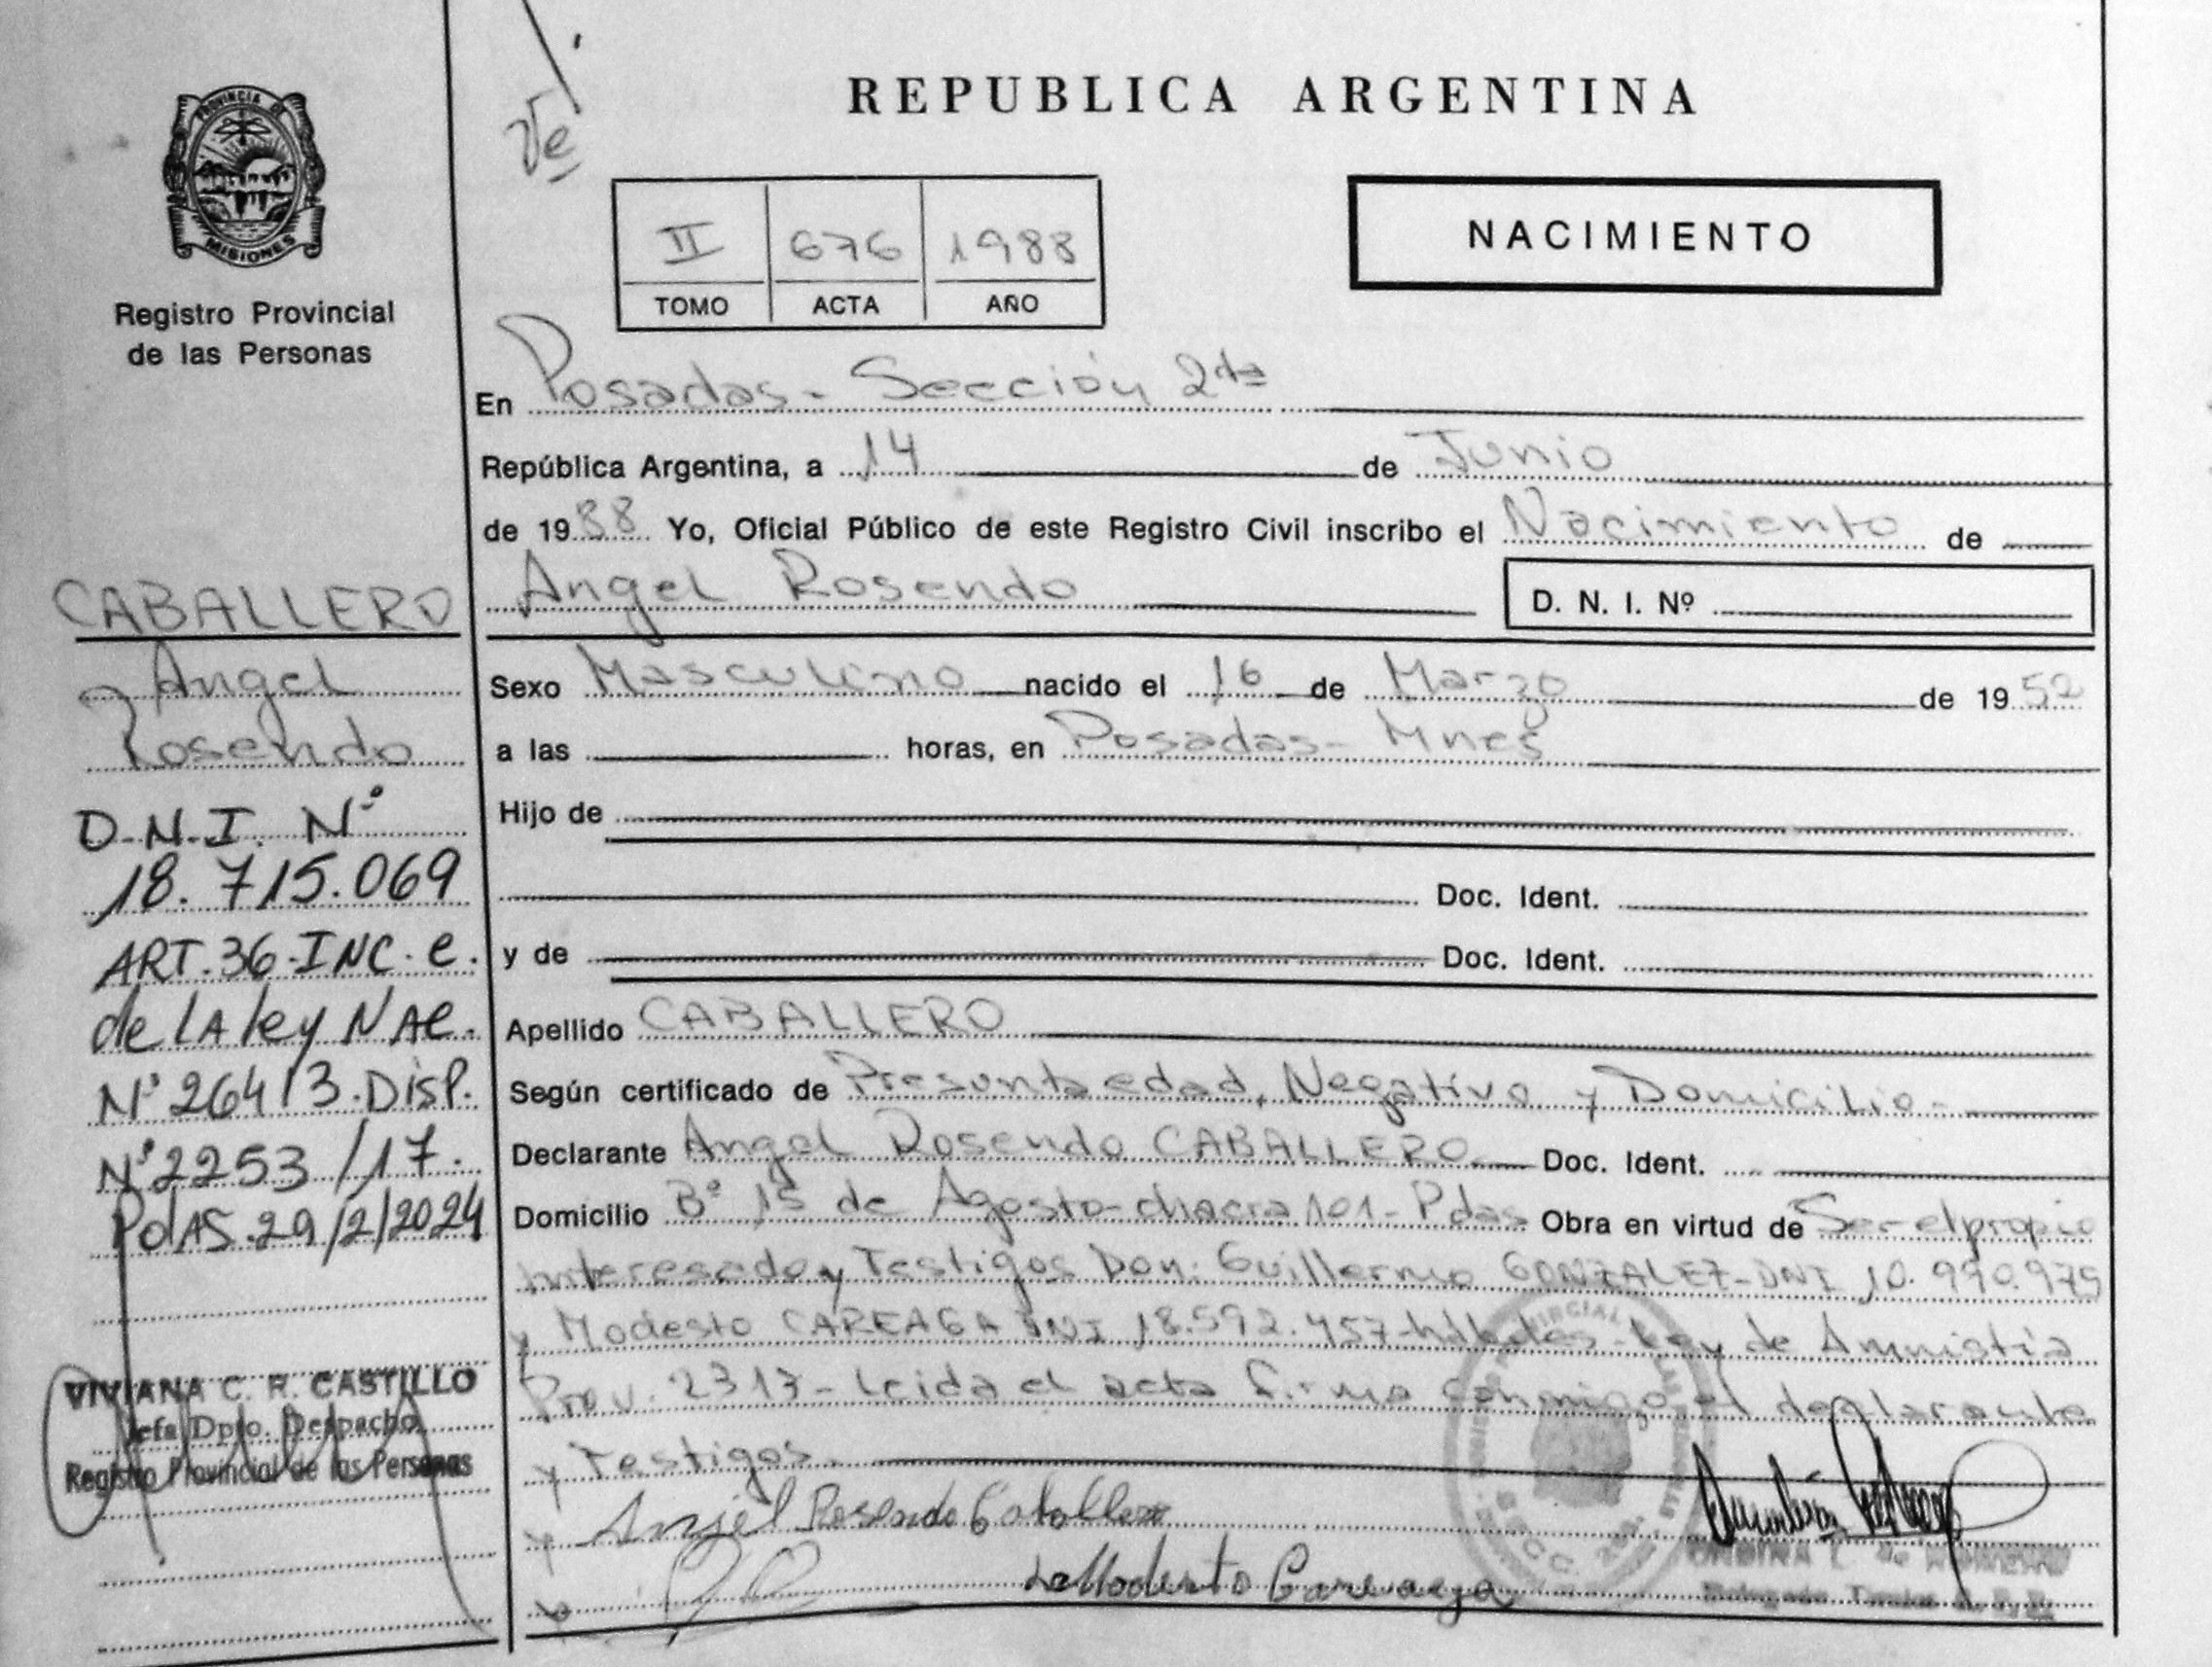 PROVINCIA DE
MISIONES
Registro Provincial
de las Personas
CABALLERO
Angel
Rosendo
D.N.I. Nº
18.715.069
ART.36-INC.e.
de LA ley NAC.
Nº 26413.DISP.
Nº 2253/17.
PdAS.29/2/2024
VIVIANA C. R. CASTILLO
Jefa Dpto. Despacho
Registro Provincial de las Personas
REPUBLICA ARGENTINA
II 676 1988
TOMO ACTA AÑO
NACIMIENTO
En Posadas - Sección 2da
República Argentina, a 14 de Junio
de 1988 Yo, Oficial Público de este Registro Civil inscribo el Nacimiento de
Angel Rosendo D. N. I. Nº
Sexo Masculino nacido el 16 de Marzo de 1952
a las horas, en Posadas - Mnes
Hijo de
Doc. Ident.
y de Doc. Ident.
Apellido CABALLERO
Según certificado de Presunta edad, Negativo y Domicilio -
Declarante Angel Rosendo CABALLERO Doc. Ident.
Domicilio Bº 15 de Agosto - chacra 101 - Pdas Obra en virtud de Ser el propio
interesado y Testigos Don: Guillermo GONZALEZ - DNI 10.990.975
y Modesto CAREAGA DNI 18.592.457 - hábiles - Ley de Amnistía
Prov. 2313 - Leida el acta firma conmigo el declarante
y Testigos.
Anjel Rosendo Caballero
Modesto Careaga